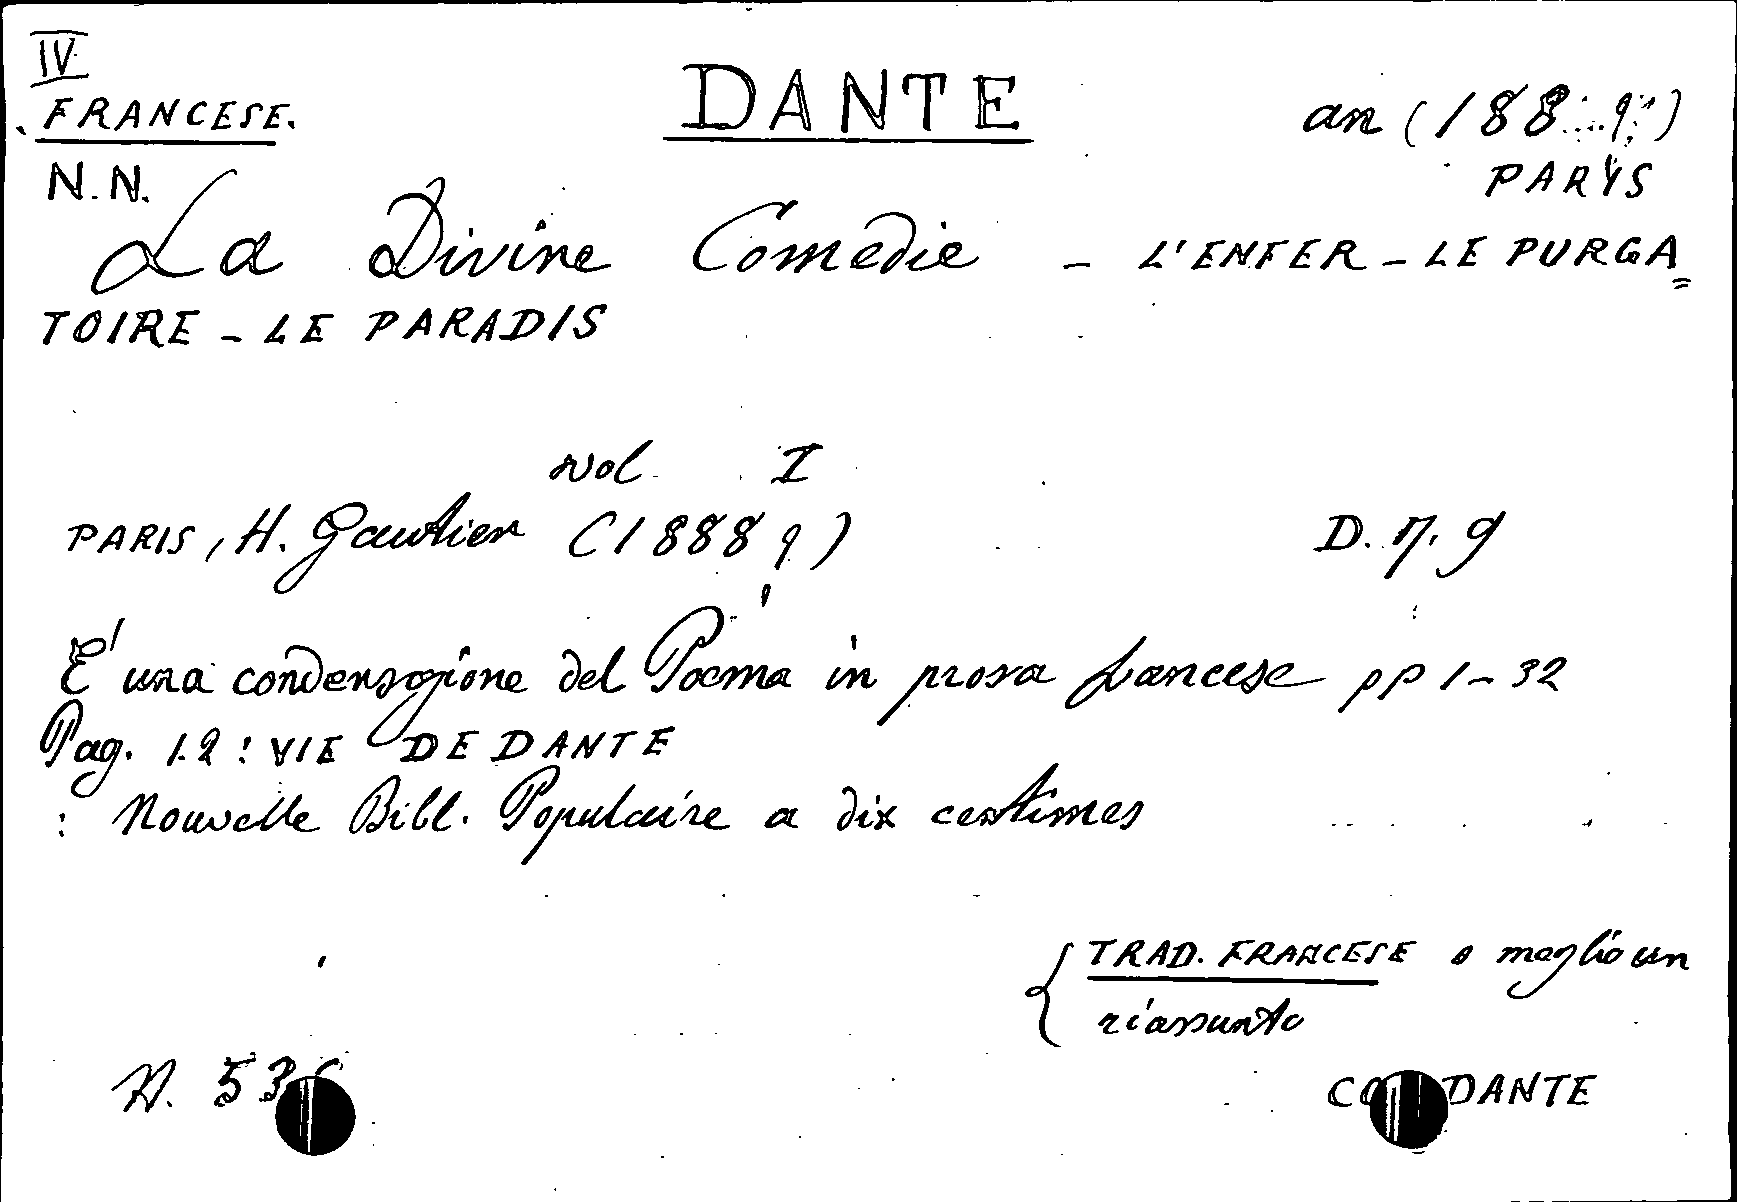 IV
FRANCESE.
DANTE
an (188..?)
PARIS
N.N.
La Divine Comedie - L'ENFER - LE PURGA=
TOIRE - LE PARADIS
vol I
PARIS, H. Gautier (1888?)
D. 7. 9
E' una condensazione del Poema in prosa francese pp 1-32
Pag. 1.2: VIE DE DANTE
: Nouvelle Bibl. Populaire a dix centimes
TRAD. FRANCESE o meglio un
riassunto
N. 53
DANTE